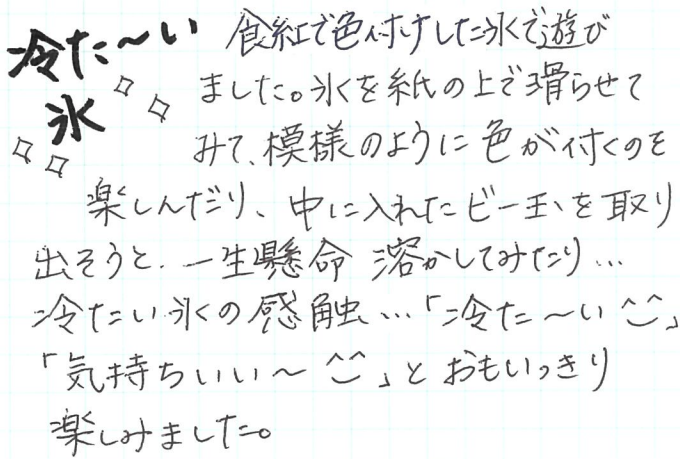 冷た〜い
氷
食紅で色付けした氷で遊び
ました。氷を紙の上で滑らせて
みて、模様のように色が付くのを
楽しんだり、中に入れたビー玉を取り
出そうと、一生懸命溶かしてみたり…
冷たい氷の感触…「冷た〜い^^」
「気持ちいい〜^^」とおもいっきり
楽しみました。